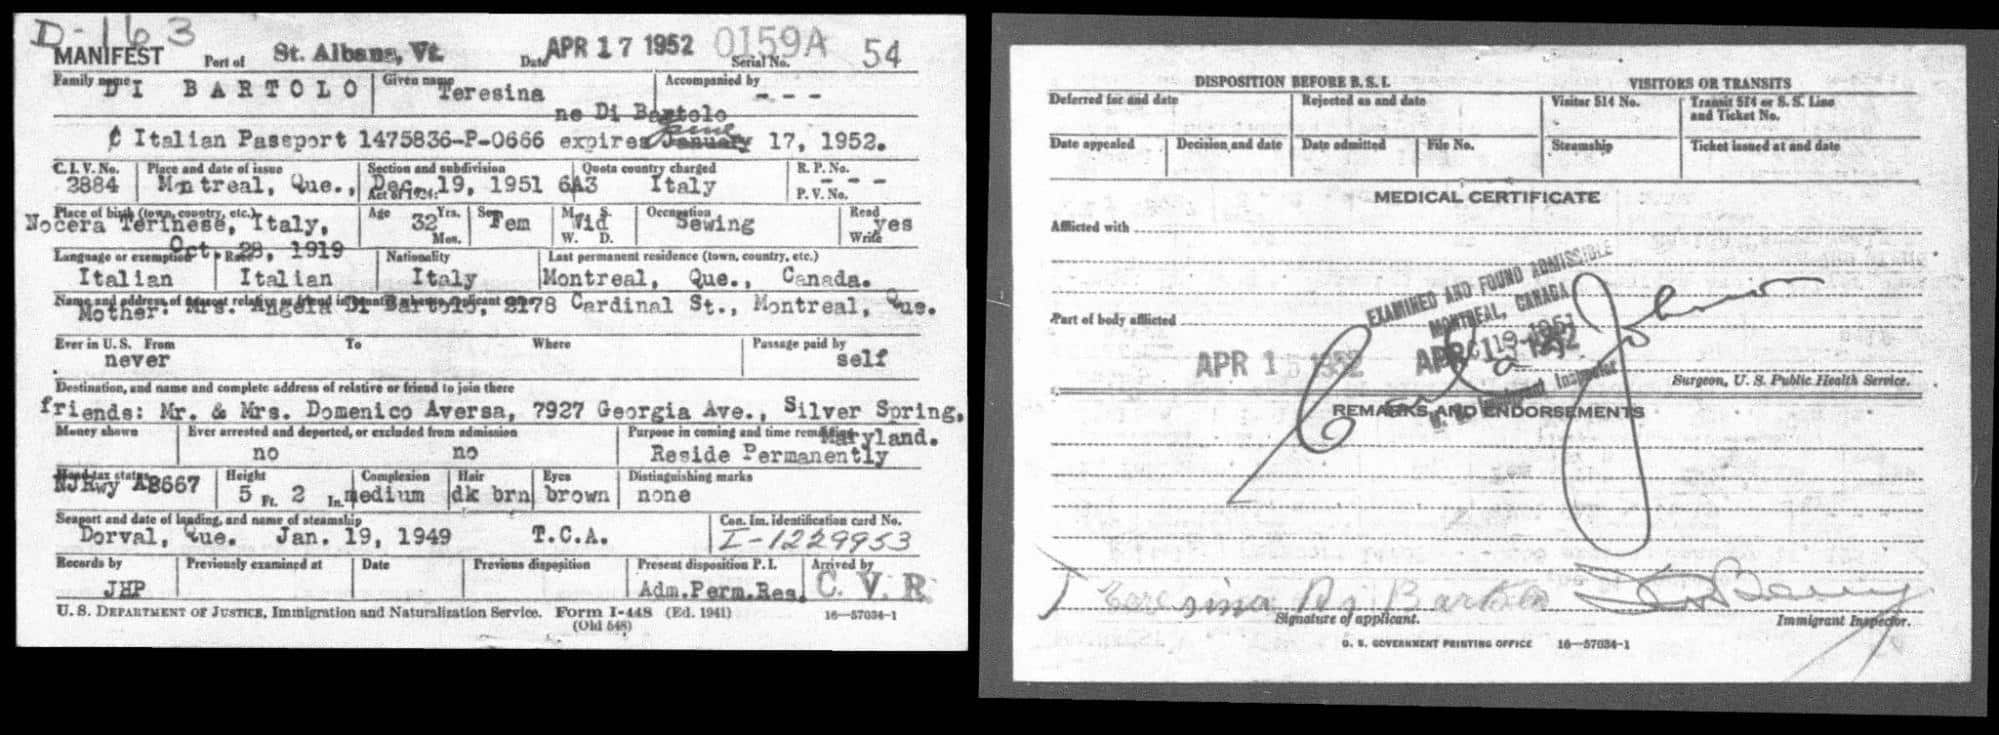 D-163
MANIFEST Port of St. Albans, Vt. Date APR 17 1952 0159A Serial No. 54
Family name DI BARTOLO Given name Teresina Accompanied by - - -
ne Di Bartolo
¢ Italian Passport 1475836-P-0666 expires January June 17, 1952.
C.I.V. No. Place and date of issue Section and subdivision Quota country charged R. P. No.
2884 Montreal, Que., Dec. 19, 1951 6A3 Italy - - -
Act of 1924: P. V. No.
Place of birth (town, country, etc.) Age Yrs. Sex M. S. Occupation Read
Nocera Terinese, Italy, 32 Fem Wid Sewing yes
Mos. W. D. Write
Oct. 28, 1919
Language or exemption Race Nationality Last permanent residence (town, country, etc.)
Italian Italian Italy Montreal, Que., Canada.
Name and address of nearest relative or friend in country whence applicant came
Mother: Mrs. Angela Di Bartolo, 2178 Cardinal St., Montreal, Que.
Ever in U.S. From To Where Passage paid by
never self
Destination, and name and complete address of relative or friend to join there
friends: Mr. & Mrs. Domenico Aversa, 7927 Georgia Ave., Silver Spring,
Money shown Ever arrested and deported, or excluded from admission Purpose in coming and time remaining
Maryland.
no no Reside Permanently
Head-tax status Height Complexion Hair Eyes Distinguishing marks
NJRwy A8667 5 Ft. 2 In. medium dk brn brown none
Seaport and date of landing, and name of steamship Con. Im. identification card No.
Dorval, Que. Jan. 19, 1949 T.C.A. I-1229953
Records by Previously examined at Date Previous disposition Present disposition P. I. Arrived by
JHP Adm.Perm.Res. C. V. R.
U. S. DEPARTMENT OF JUSTICE, Immigration and Naturalization Service. Form I-448 (Ed. 1941) 16—57034-1
(Old 548)
DISPOSITION BEFORE B. S. I. VISITORS OR TRANSITS
Deferred for and date Rejected as and date Visitor 514 No. Transit 514 or S. S. Line
and Ticket No.
Date appealed Decision and date Date admitted File No. Steamship Ticket issued at and date
MEDICAL CERTIFICATE
Afflicted with
EXAMINED AND FOUND ADMISSIBLE
MONTREAL, CANADA
Part of body afflicted
APR 15 1952 APR 15 1952
U. S. Immigrant Inspector
Surgeon, U. S. Public Health Service.
REMARKS AND ENDORSEMENTS
Teresina Di Bartolo
Signature of applicant. Immigrant Inspector.
U. S. GOVERNMENT PRINTING OFFICE 16—57034-1